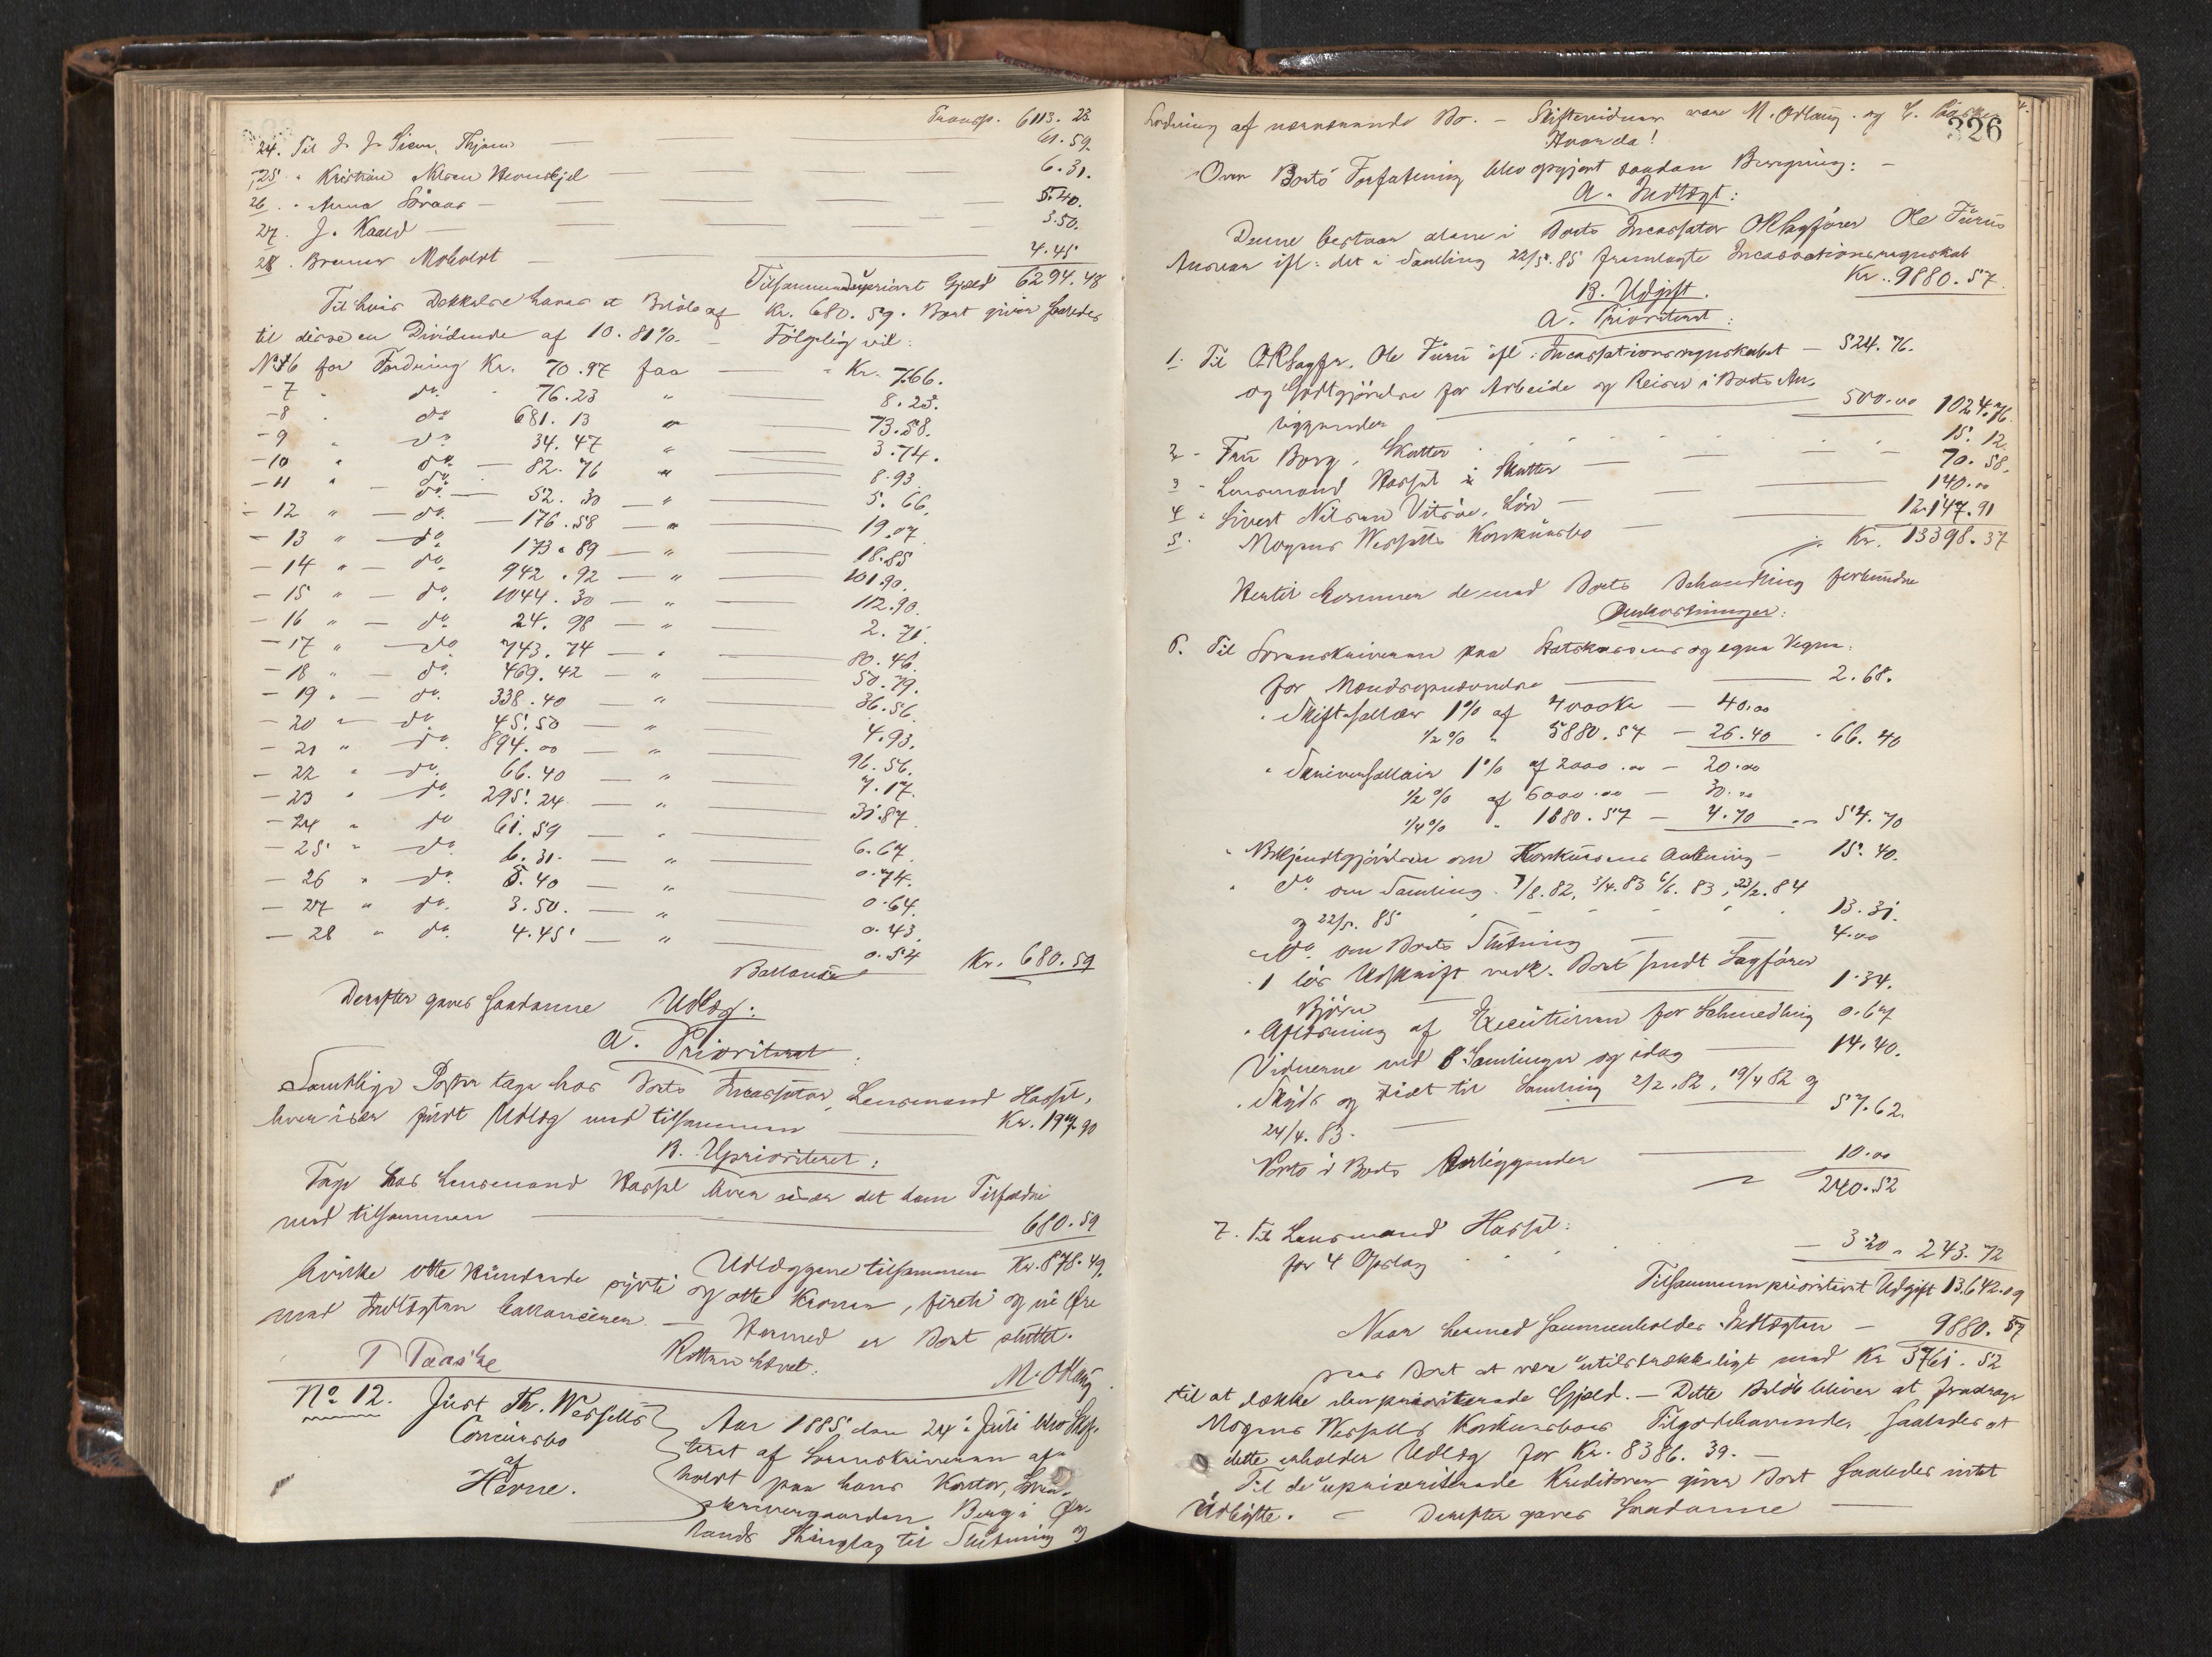 Transp. 6113. 23.
24. Til J. J. Siem, Thjem — 61.59.
25. " Kristian Nilsen Hevnskjel — 6.31.
26. " Anna Söraas — 5.40.
27. J. Kaald — 3.50.
28. Brenner Moholdt — 4.45
Tilsammen upriorit Gjæld 6294.48
Til hvis Dækkelse haves et Beløb af Kr. 680.59. Boet giver saaledes
til disse en Dividende af 10.81%. — Følgelig vil:
No 6 for Fordring Kr. 70.97 faa — " Kr. 7.66.
- 7 " do. " 76.23 " — 8.23.
- 8 " do 681.13 " — 73.58.
- 9 " do 34.47 " — 3.74.
- 10 " do. — 82.76 " — 8.93.
- 11 " — do. — 52.30 — " — 5.66.
- 12 " — do. — 176.58 — " — 19.07.
- 13 " — do. 173.89 — " — 18.85
- 14 " — do. 942.92 — " — 101.90.
- 15 " — do. 1044.30 — " — 112.90.
- 16 " — do. 24.98 — " — 2.71.
- 17 " — do 743.74 — " — 80.46.
- 18 " — do. 469.42 — " — 50.79.
- 19 " — do. 338.40 — " — 36.56.
- 20 " — do. 45.50 — " — 4.93.
- 21 " — do. 894.00 — " — 96.56.
- 22 " — do. 66.40 — " — 7.17.
- 23 " do. 295.24 — " — 31.87.
- 24 " do 61.59 — " — 6.67.
- 25 " — do. 6.31. — " — 0.74.
- 26 " — do. 5.40 — " — 0.64.
- 27 " do. 3.50. — " — 0.43.
- 28 " do. 4.45 — " — 0.54 Kr. 680.59
Ballance
Derefter gaves saadanne Udlæg:
A. Prioriteret:
Samtlige Poster tage hos Boets Incassator, Lensmand Hassel,
hver især fuldt Udlæg med tilsammen — Kr. 197.90
B. Uprioriteret:
Tage hos Lensmand Hassel hver især det dem Tilfaldne
med tilsammen — 680.59
Udlæggene tilsammen Kr. 878.49.
hvilke otte Hundrede sytti og otte Kroner, firti og ni Øre
med Indtægten balancerer. — Hermed er Boet sluttet.
Retten hævet.
P Taaske M. Odlaug
No 12. Just Th. Wessels
Concursbo
af
Hevne.
Aar 1885 den 24 Juli blev Skif-
teret af Sorenskriveren af-
holdt paa hans Kontor, Soren-
skrivergaarden Berg i Ør-
lands Thinglag til Slutning og
326
Lodning af nærværende Bo. — Skiftevidner vare M. Odlaug og
Hvorda!
Over Boets Forfatning blev opgjort saadan Beregning: —
A. Indtægt:
Denne bestaar alene i Boets Incassator ORSagfører Ole Furus
Ansvar ifl. det i Samling 22/5. 85 fremlagte Incassationsregnskab
Kr. 9880.57
B. Udgift.
a. Prioriteret:
1. Til ORSagfr. Ole Furu ifl. Incassationsregnskabet — 524.76.
og Godtgjörelse for Arbeide og Reiser i Boets An-
liggender — 500.00 1024.76.
2 - Fru Borg, Skatter — 15.12.
3 - Lensmand Hassel i Skatter — 70.58.
4 " Sivert Nilsen Vitsøe, Løn — 140.00
5. Mogens Wessels Konkursbo — 12.147.91
Kr. 13398.37
Hertil kommer de med Boets Behandling forbundne
Omkostninger:
6. Til Sorenskriveren paa Statskassens og egne Vegne:
for Mændsopnævnelse — 2.68.
" Skiftesallær 1% af 4000 Kr — 40.00
1/2% " 5880.57 — 26.40 " 66.40
" Skriversallair 1% af 2000.00 — 20.00
1/2% af 6000.00 — 30.00
1/4% " 1880.57 — 4.70 " 54.70
" Bekjendtgjörelse om Konkursens Aabning — 15.40.
" do om Samling 7/8.82, 3/4.83 6/6.83, 23/2.84
og 22/5. 85 — 13.31.
" do. om Boets Slutning — 4.00
" 1 løs Udskrift vedk. Boet sendt Sagfører
Bjørn — 1.34.
" Afløsning af Executionen for Schmedling 0.67
Vidnerne ved 8 Samlinger og idag — 14.40.
" Skyds og Diæt til Samling 2/2.82, 19/4 82 og
24/4. 83. — 57.62.
Porto i Boets Anliggender — 10.00
240.52
7. Til Lensmand Hassel:
for 4 Opslag — 3.20 " 243.72
Tilsammen prioriteret Udgift 13.642.09
Naar hermed sammenholdes Indtægten — 9880.57
sees Boet at være utilstrækkeligt med Kr 3761.52
til at dække den prioriterede Gjæld. — Dette Beløb bliver at fradrage
Mogens Wessels Konkursboes Tilgodehavende, saaledes at
dette erholder Udlæg for Kr. 8386.39. —
Til de uprioriterede Kreditorer giver Boet saaledes intet
Udbytte. — Derefter gaves saadanne —